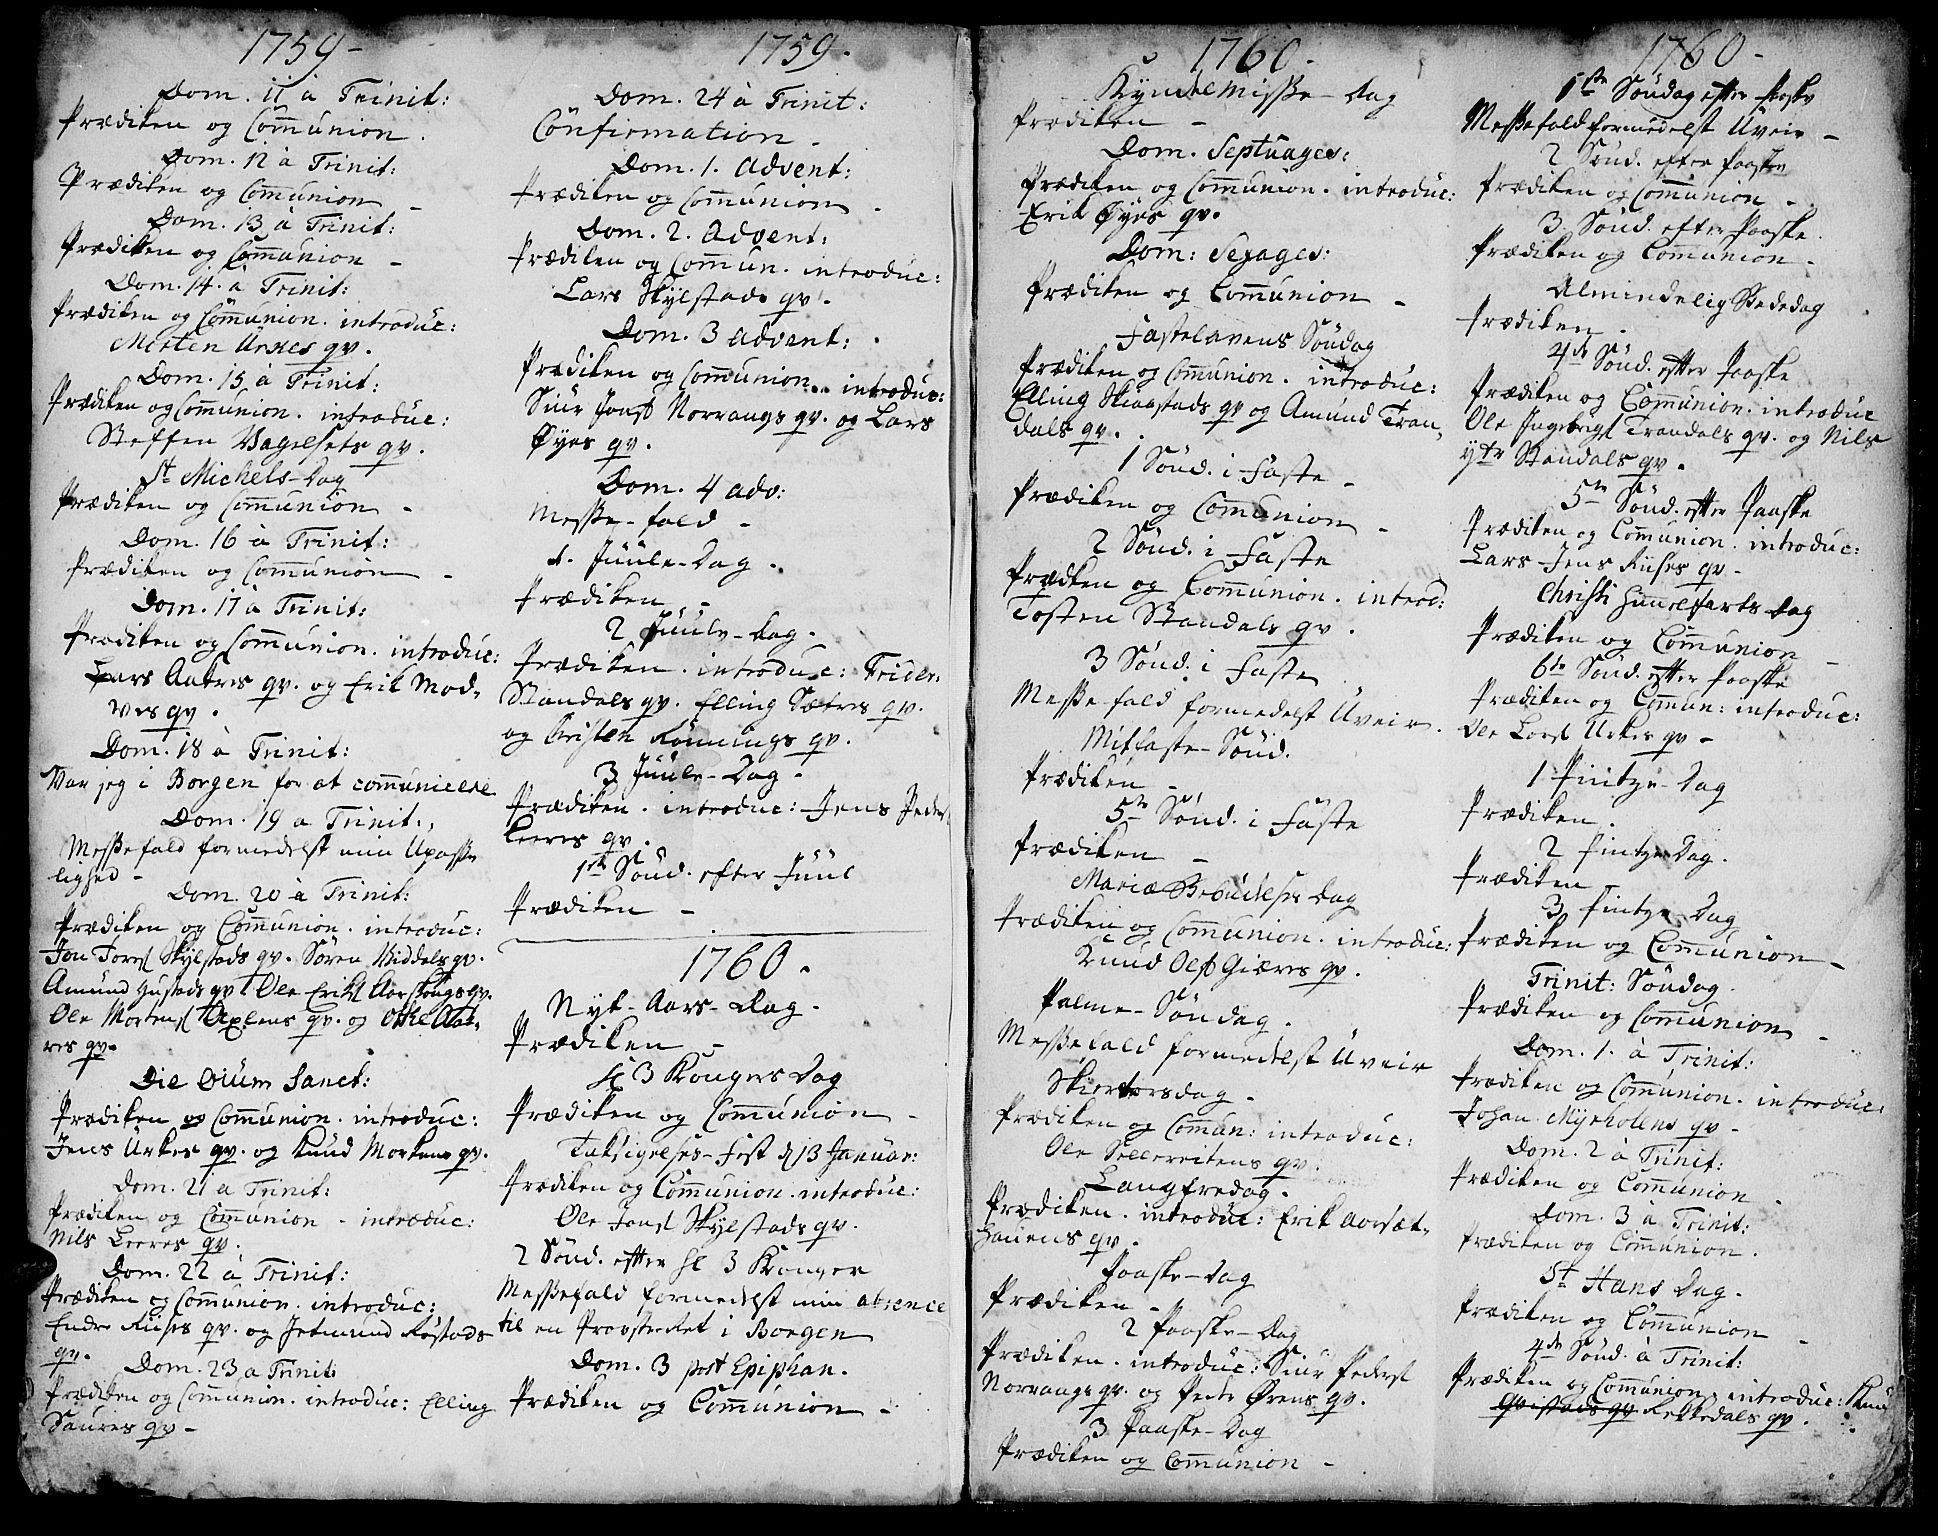 1759 -
Dom. 11 à Trinit:
Prædiken og Com̄union.
Dom. 12 à Trinit:
Prædiken og Com̄union -
Dom. 13 à Trinit:
Prædiken og Com̄union -
Dom. 14. à Trinit:
Prædiken og Com̄union. introduc:
Morten Urkes qv.
Dom. 15 à Trinit:
Prædiken og Com̄union. introduc:
Steffen Vagelsets qv.
St Michels-Dag
Prædiken og Com̄union -
Dom. 16 à Trinit:
Prædiken og Com̄union -
Dom. 17 à Trinit:
Prædiken og Com̄union. introduc:
Lars Aatres qv. og Erik Mod-
ves qv.
Dom. 18 à Trinit:
Var jeg i Borgen for at com̄unicere
Dom. 19 a Trinit:,
Messefald formedelst min Upasse
lighed -
Dom. 20 à Trinit:
Prædiken og Com̄union. introduc:
Jon Jons Skylstads qv. Søren Viddals qv.
Amund Hustads qv Ole Eriks Aarskougs qv.
Ole Mortens Øxlens qv. og Ottke Aat-
res qv.
Die Oium Sanct:
Prædiken og Com̄union. introduc:
Jens Urkes qv. og Knud Morkens qv.
Dom. 21 a Trinit:
Prædiken og Com̄union - introduc:
Nils Leeres qv.
Dom. 22 à Trinit:
Prædiken og Com̄union. introduc:
Endre Riises qv. og Jetmund Røstads
qv.
Dom. 23 a Trinit:
Prædiken og Com̄union. introduc: Elling
Saures qv -
1759.
Dom. 24 à Trinit:
Confirmation -
Dom. 1. Advent:
Prædiken og Com̄union -
Dom. 2. Advent:
Prædiken og Com̄un. introduc:
Lars Skylstads qv.
Dom. 3 advent:
Prædiken og Com̄union. introduc:
Siur Jons Norrangs qv. og Lars
Øyes qv.
Dom. 4 adv:
Messe-fald -
1. Juule-Dag.
Prædiken -
2 Juule-Dag.
Prædiken. introduc: Frider:
Standals qv. Elling Sætres qv.
og Christen Rønnings qv.
3 Juule-Dag.
Prædiken. introduc: Jens Peders
Leeres qv.
1ste Sønd. efter Juul
Prædiken -
1760.
Nyt-Aars-Dag.
Prædiken -
Hl 3 Kongers Dag
Prædiken og Com̄union -
Taksigelses-Fest d 13 Januar:
Prædiken og Com̄union. introduc:
Ole Jons Skylstads qv.
2 Sønd. efter Hl 3 Konger
Messefald formedelst min absence
til en Provste-Ret i Borgen
Dom. 3 post Epiphan.
Prædiken og Com̄union -
1760.
Kyndelmisse-Dag
Prædiken -
Dom. Septuages:
Prædiken og Com̄union. introduc:
Erik Øyes qv.
Dom: Sexages:
Prædiken og Com̄union -
Fastelavens Søndag
Prædiken og Com̄union. introduc:
Elling Skiaastads qv og Amund Tran-
dals qv.
1 Sønd. i Faste -
Prædiken og Com̄union -
2 Sønd. i Faste
Prædken og Com̄union. introd:
Tosten Standals qv.
3 Sønd. i Faste
Messe fald formedelst Uveir.
Mitfaste-Sønd.
Prædiken -
5te Sønd. i Faste
Prædiken -
Mariæ Bebudelses Dag
Prædiken og Com̄union. introduc:
Knud Ols Giæres qv.
Palme-Søndag.
Messefald formedelst Uveir
Skiertorsdag.
Prædiken og Com̄un: introduc:
Ole Sellereitens qv.
Langfredag.
Prædiken. introduc: Erik Aarsæt-
Hauens qv.
Paaske-Dag
Prædiken -
2 Paaske-Dag
Prædiken. introduc: Siur Peders
Norrangs qv. og Peder Ørens qv.
3 Paaske-Dag
Prædiken og Com̄union -
1760 -
1ste Søndag efter Paaske
Messefald formedelst Uveir -
2 Sønd. efter Paaske
Prædiken og Com̄union -
3 Sønd. efter Paaske.
Prædiken og Com̄union -
Almindelig Bededag
Prædiken.
4de Sønd. efter Paaske
Prædiken og Com̄union. introduc
Ole Ingebrigts Trandals qv. og Nils
ytr Standals qv.
5te Sønd. efter Paaske
Prædiken og Com̄union. introduc:
Lars Jens Riises qv -
Christi Himmelfarts Dag
Prædiken og Com̄union -
6te Sønd. efter Paaske
Prædiken og Com̄un: introduc:
Ole Lars Urkes qv -
1 Pintze-Dag
Prædiken.
2 Pintze Dag.
Prædiken -
3 Pintze Dag
Prædiken og Com̄union -
Trinit: Søndag.
Prædiken og Com̄union -
Dom. 1. à Trinit:
Prædiken og Com̄union. introduc:
Johan Myrholens qv -
Dom. 2 à Trinit:
Prædiken og Com̄union -
Dom. 3 à Trinit:
Prædiken og Com̄union.
St Hans Dag.
Prædiken og Com̄union -
4de Sønd. à Trinit:
Prædiken og Com̄union. introduc: Knud
Qvistads qv Rekkedals qv.